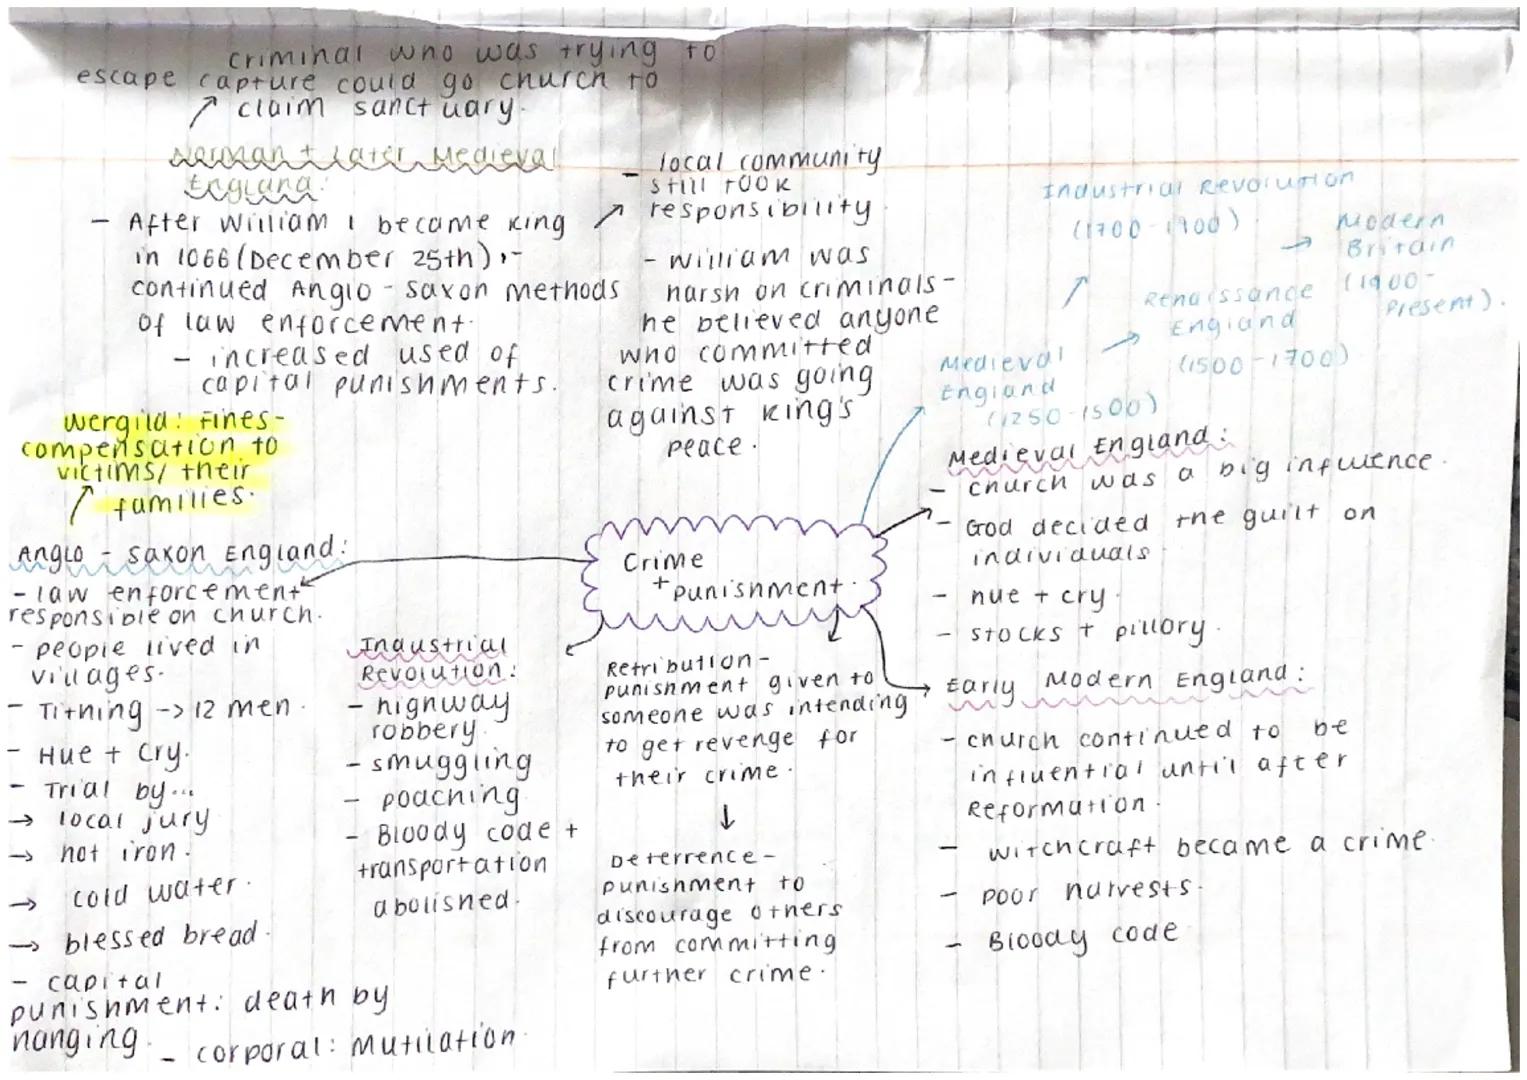 criminal who was trying to
escape capture could go church to
↗ claim sanctuary.
Norman + Later Medieval
England:
- After William I became king
in 1066 (December 25th),-
continued Anglo-Saxon methods
of law enforcement.
- increased used of
capital punishments.
- local community
still took
↗ responsibility.
- William was
harsh on criminals-
he believed anyone
who committed
crime was going
against King's
peace.
Industrial Revolution
(1700-1900)
→ Modern
Britain
(1900-
Present).
↗
Renaissance
→ England
(1500-1700)
Medieval
England
(1250-1500)
Wergild: Fines-
compensation to
victims/ their
↗ families.
Anglo-Saxon England:
- law enforcement
responsible on church.
- people lived in
villages.
- Tithing -> 12 men.
- Hue + Cry.
- Trial by...
→ local jury
→ hot iron.
→ cold water.
→ blessed bread.
- capital
punishment: death by
hanging.
- corporal: Mutilation.
Industrial
Revolution:
- highway
robbery.
- smuggling
- poaching.
- Bloody code +
transportation
abolished.
Crime
+ punishment.
Retribution-
punishment given to
someone was intending
to get revenge for
their crime.
↓
Deterrence-
punishment to
discourage others
from committing
further crime.
Medieval England:
- church was a big influence.
- God decided the guilt on
individuals
- hue + cry.
- stocks + pillory.
Early Modern England:
- church continued to be
influential until after
Reformation.
- witchcraft became a crime.
- poor harvests.
- Bloody code